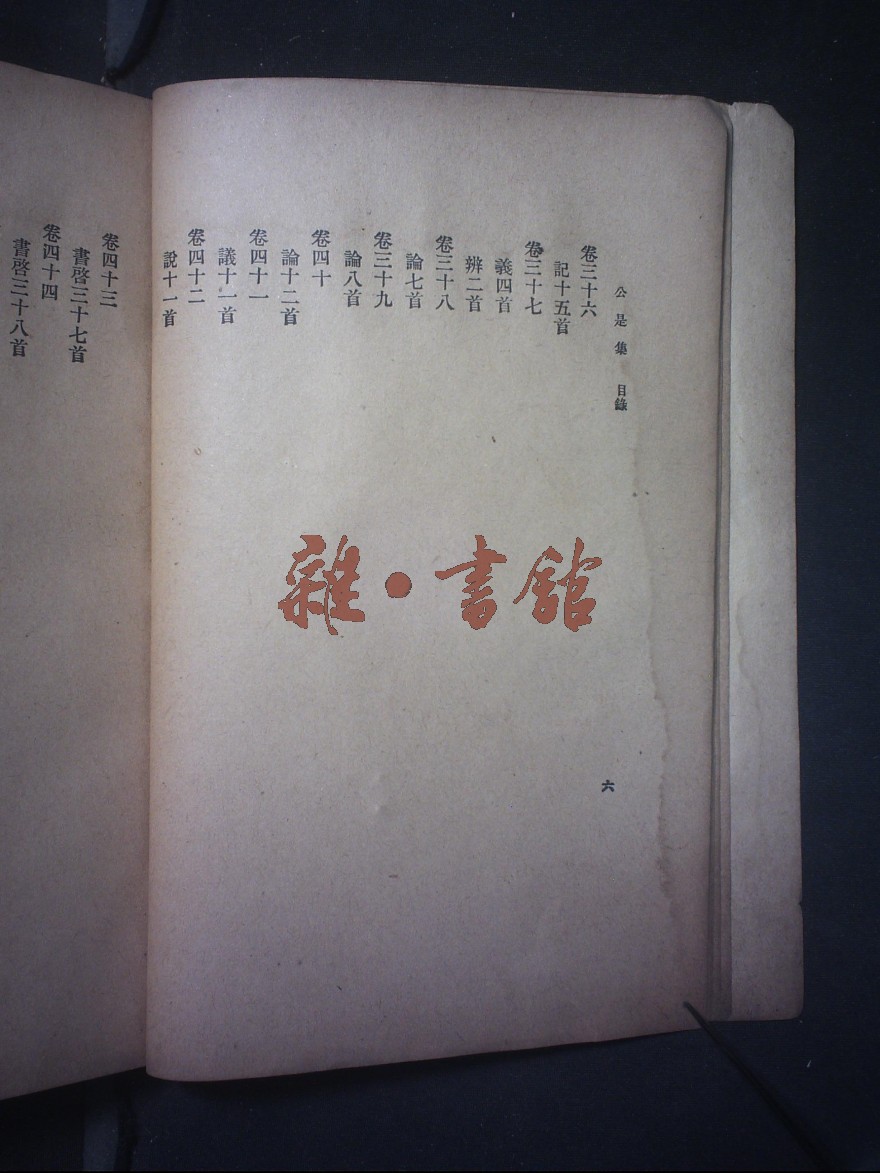 公是集 目錄
卷三十六
記十五首
卷三十七
義四首
辨二首
卷三十八
論七首
卷三十九
論八首
卷四十
論十二首
卷四十一
議十一首
卷四十二
說十一首
六
卷四十三
書啓三十七首
卷四十四
書啓三十八首
雜·書館